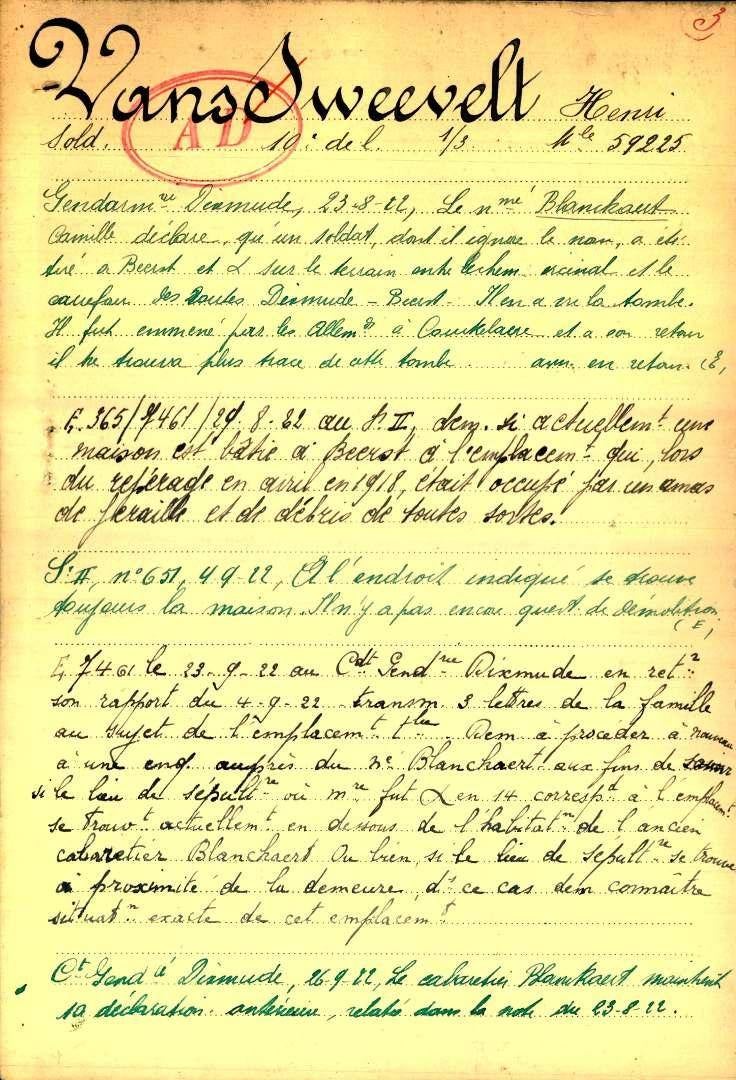 3
VansSweevelt Henri
Sold. AD 10e de l. 1/3 Mle 59225
Gendarmrie Dixmude, 23-8-22, Le nmé Blanckaert
Camille déclare, qu'un soldat, dont il ignore le nom, a été
tué a Beerst et L sur le terrain entre le chem. vicinal et le
carrefour des routes Dixmude - Beerst. Il en a vu la tombe.
Il fut emmené par les Allemds à Couckelaere et a son retour
il ne trouva plus trace de cette tombe. en retour. (E,
E. 365/7461/29. 8-22 au S. II, dem. si actuellemt une
maison est bâtie à Beerst à l'emplacemt qui, lors
du repérage en avril en 1918, était occupé par un amas
de feraille et de débris de toutes sortes.
S. II, n° 651, 4-9-22, A l'endroit indiqué se trouve
toujours la maison. Il n'y a pas encore quest. de démolition
(E)
E, 7461 le 23-9-22 au Cdt Gendrie Dixmude en ret
son rapport du 4-9-22 transm. 3 lettres de la famille
au sujet de l'emplacemt tbe. Dem à procéder à nouveau
à une enq. auprès du né Blanchaert aux fins de savoir
si le lieu de sépultre où mre fut L en 14 correspd à l'emplacemt
se trouvt actuellemt en dessous de l'habitatn de l'ancien
cabaretier Blanchaert Ou bien, si le lieu de sépultre se trouve
à proximité de la demeure, ds ce cas dem connaître
situatn exacte de cet emplacemt
Ct Gendie Dixmude, 26-9-22, Le cabaretier Blanckaert maintient
sa déclaration antérieure, relatée dans la note du 23-8-22.